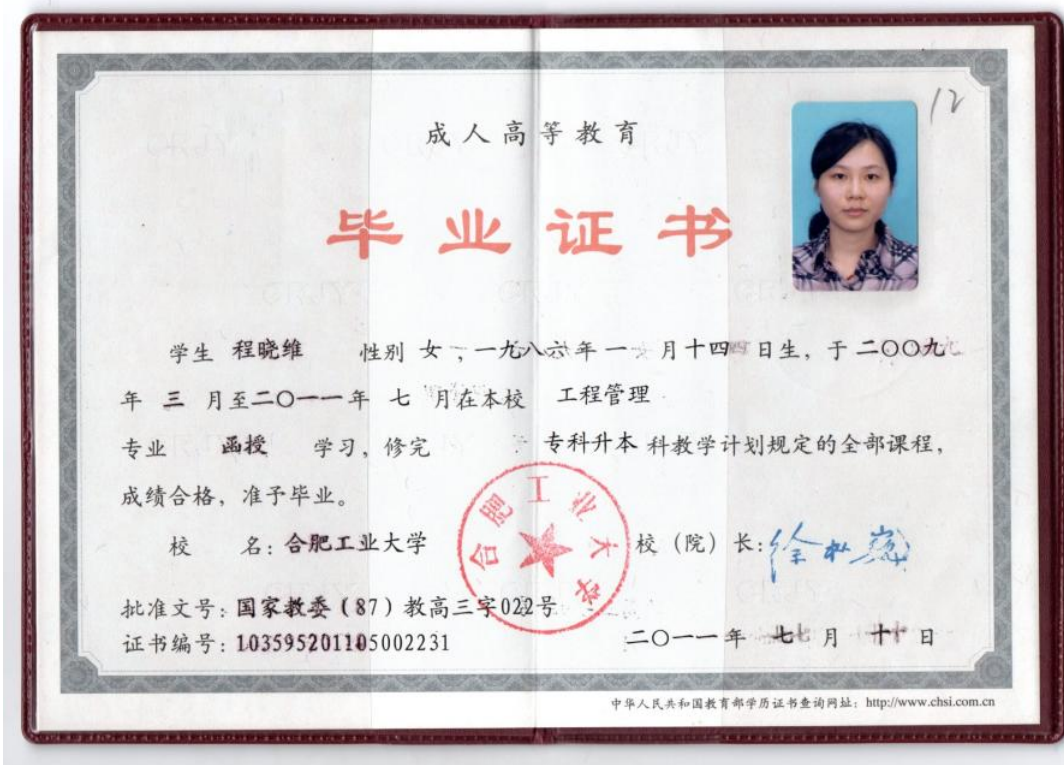 12
成人高等教育
毕业证书
学生 程晓维 性别 女，一九八六年一 月十四日生，于二〇〇九
年 三 月至二〇一一年 七 月在本校 工程管理
专业 函授 学习，修完 专科升本科教学计划规定的全部课程，
成绩合格，准予毕业。
合肥工业大学
校 名：合肥工业大学 校（院）长：
批准文号：国家教委（87）教高三字022号
证书编号：103595201105002231 二〇一一年 七 月 十 日
中华人民共和国教育部学历证书查询网址：http://www.chsi.com.cn